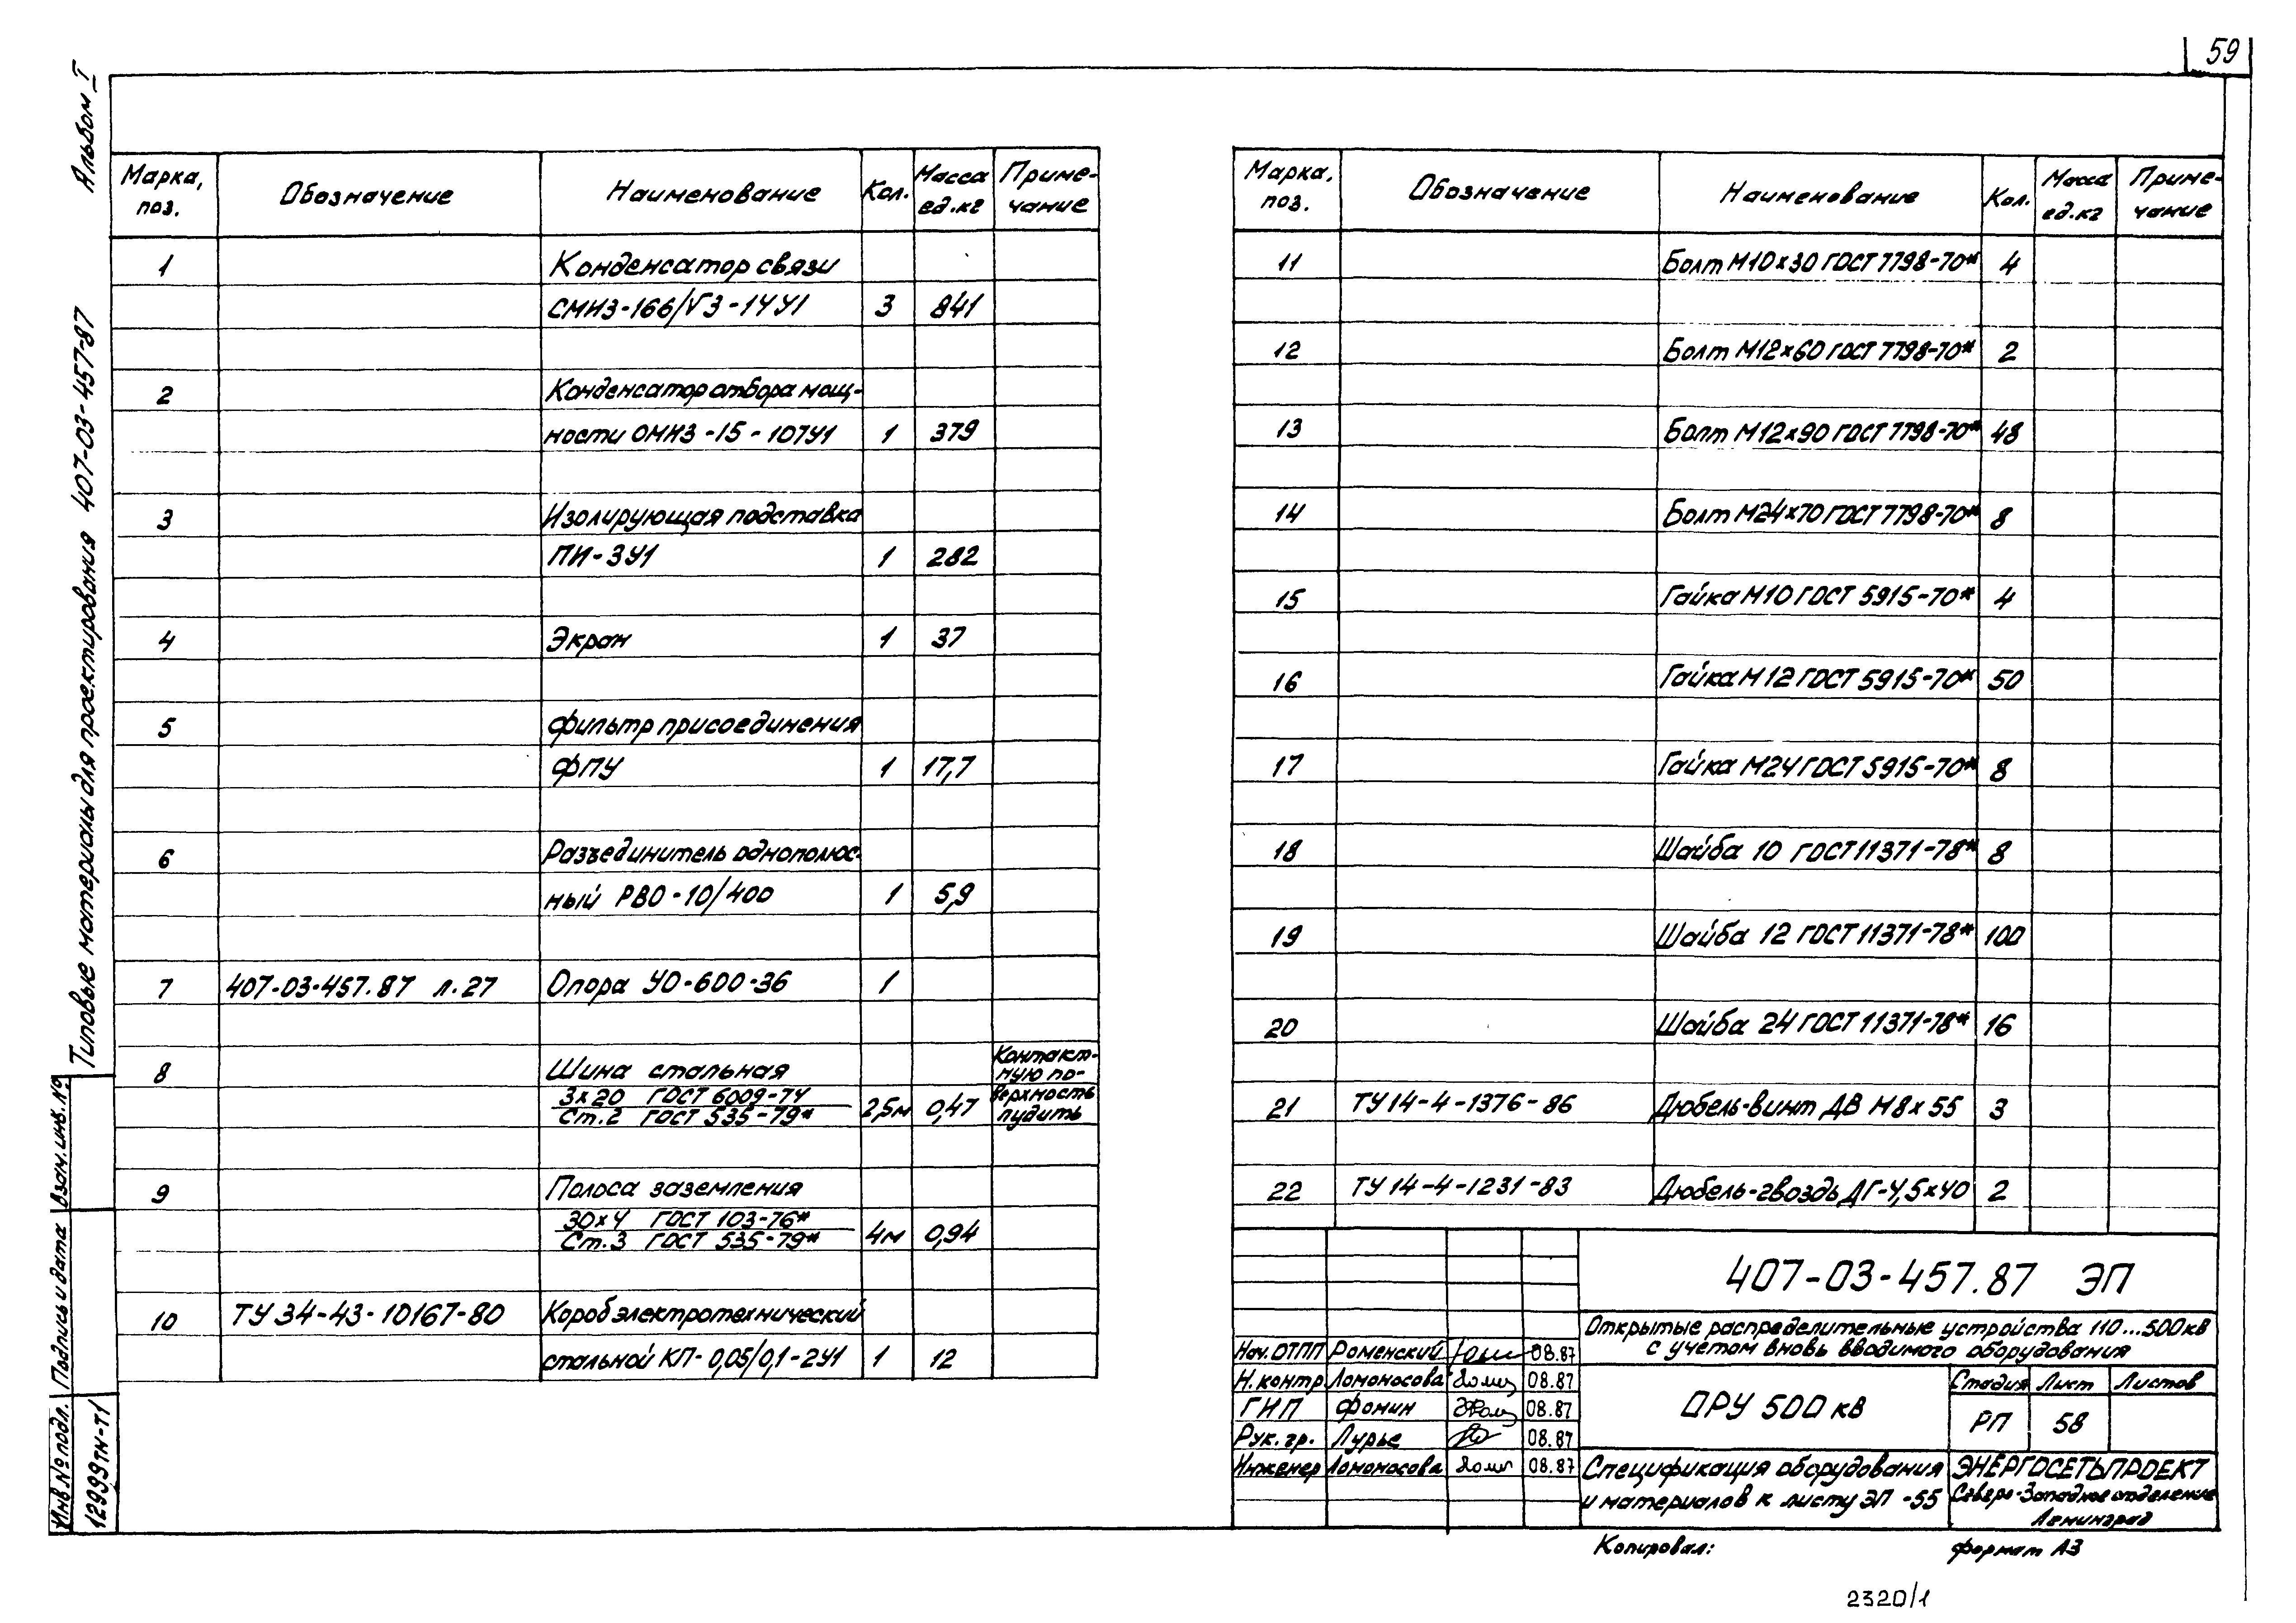 59
Альбом I
Типовые материалы для проектирования 407-03-457-87
Взам. инв. №
Подпись и дата
Инв № подл.
12999тм-т1
Марка, поз. Обозначение Наименование Кол. Масса ед.кг Приме-чание
1 Конденсатор связи
СМИЗ-166/√3-14У1 3 841
2 Конденсатор отбора мощ-
ности ОМИЗ-15-107У1 1 379
3 Изолирующая подставка
ПИ-3У1 1 282
4 Экран 1 37
5 Фильтр присоединения
ФПУ 1 17,7
6 Разъединитель однополюс-
ный РВО-10/400 1 5,9
7 407-03-457.87 л.27 Опора УО-600-36 1
8 Шина стальная Контакт-ную по-
3х20 ГОСТ 6009-74 верхность
Ст.2 ГОСТ 535-79* 2,5м 0,47 лудить
9 Полоса заземления
30х4 ГОСТ 103-76*
Ст.3 ГОСТ 535-79* 4м 0,94
10 ТУ 34-43-10167-80 Короб электротехнический
стальной КП-0,05/0,1-2У1 1 12
Марка, поз. Обозначение Наименование Кол. Масса ед.кг Приме-чание
11 Болт М10х30 ГОСТ 7798-70* 4
12 Болт М12х60 ГОСТ 7798-70* 2
13 Болт М12х90 ГОСТ 7798-70* 48
14 Болт М24х70 ГОСТ 7798-70* 8
15 Гайка М10 ГОСТ 5915-70* 4
16 Гайка М12 ГОСТ 5915-70* 50
17 Гайка М24 ГОСТ 5915-70* 8
18 Шайба 10 ГОСТ 11371-78* 8
19 Шайба 12 ГОСТ 11371-78* 100
20 Шайба 24 ГОСТ 11371-78* 16
21 ТУ 14-4-1376-86 Дюбель-винт ДВ М8х55 3
22 ТУ 14-4-1231-83 Дюбель-гвоздь ДГ-4,5х40 2
407-03-457.87 ЭП
Открытые распределительные устройства 110...500кв
с учетом вновь вводимого оборудования
Нач.ОТПП Роменский 08.87
Н.контр Ломоносова 08.87
ГИП Фомин 08.87
Рук.гр. Лурье 08.87
Инженер Ломоносова 08.87
ОРУ 500 кв
Стадия Лист Листов
РП 58
Спецификация оборудования
и материалов к листу ЭП-55
ЭНЕРГОСЕТЬПРОЕКТ
Северо-Западное отделение
Ленинград
Копировал: Формат А3
2320/1